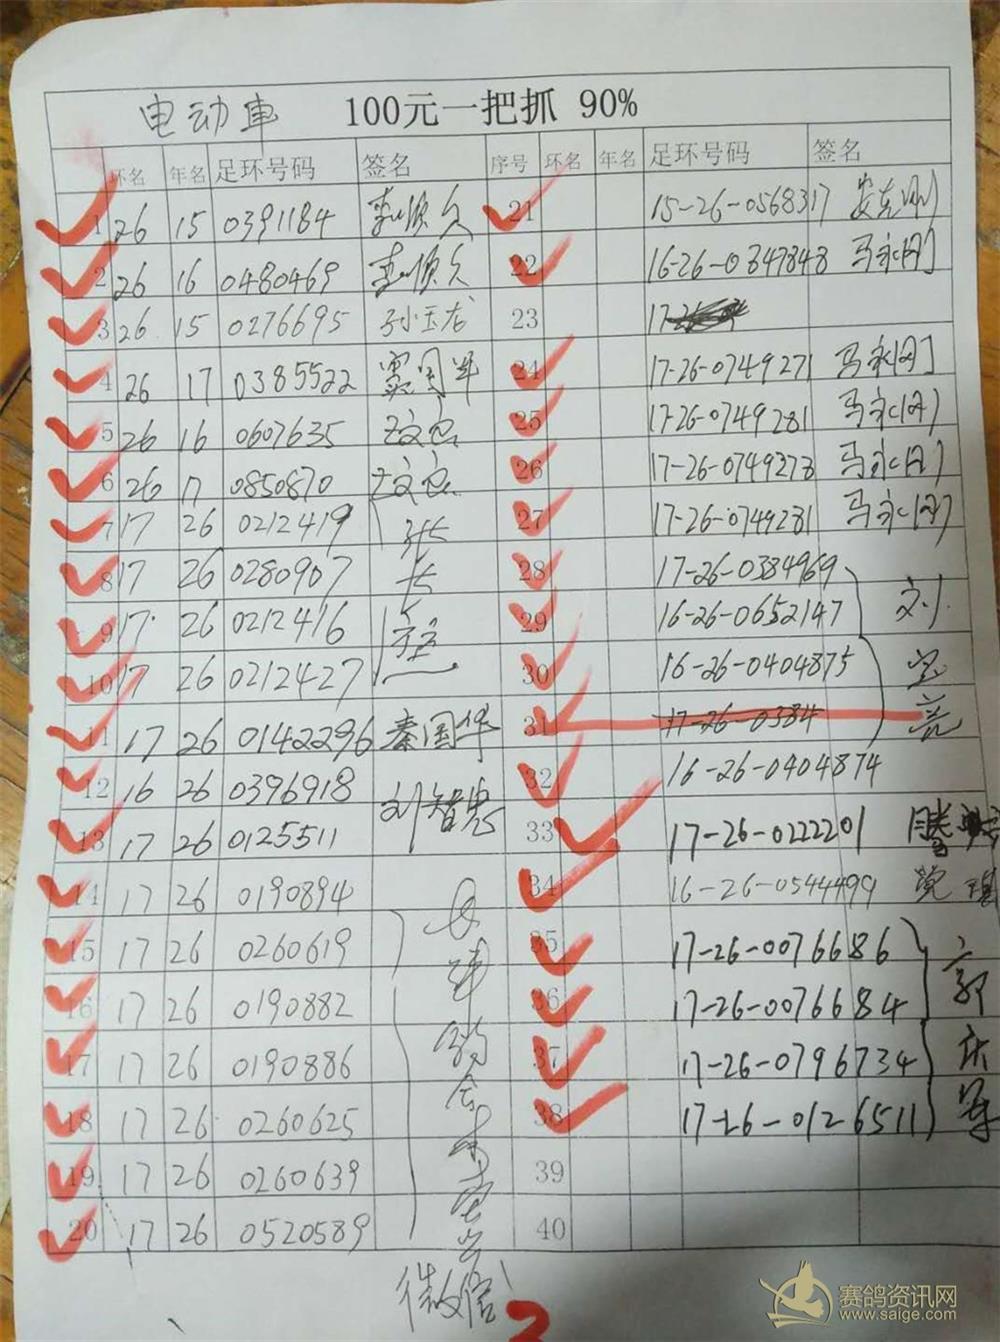 电动车 100元一把抓 90%
环名 年名 足环号码 签名 序号 环名 年名 足环号码 签名
1 26 15 0391184 李顺久 21 15-26-0568317 安克刚
2 26 16 0480469 李顺久 22 16-26-0347848 马永刚
3 26 15 0276695 孙玉龙 23 17-26
4 26 17 0385522 国军 24 17-26-0749271 马永刚
5 26 16 0607635 25 17-26-0749281 马永刚
6 26 17 0850870 26 17-26-0749273 马永刚
7 17 26 0212419 张 27 17-26-0749231 马永刚
8 17 26 0280907 长 28 17-26-0384969 刘
9 17 26 0212416 29 16-26-0652147
10 17 26 0212427 30 16-26-0404875 宝
11 17 26 0142296 秦国华 31 17-26-0384 亮
12 16 26 0396918 刘智忠 32 16-26-0404874
13 17 26 0125511 33 17-26-0222201 腾
14 17 26 0190894 34 16-26-0544499 党琪
15 17 26 0260619 35 17-26-0076686 郭
16 17 26 0190882 36 17-26-0076684
17 17 26 0190886 鸽 37 17-26-0796734 庆
18 17 26 0260625 会 38 17-26-0126511 军
19 17 26 0260639 39
20 17 26 0520589 40
微信
赛鸽资讯网
www.saige.com